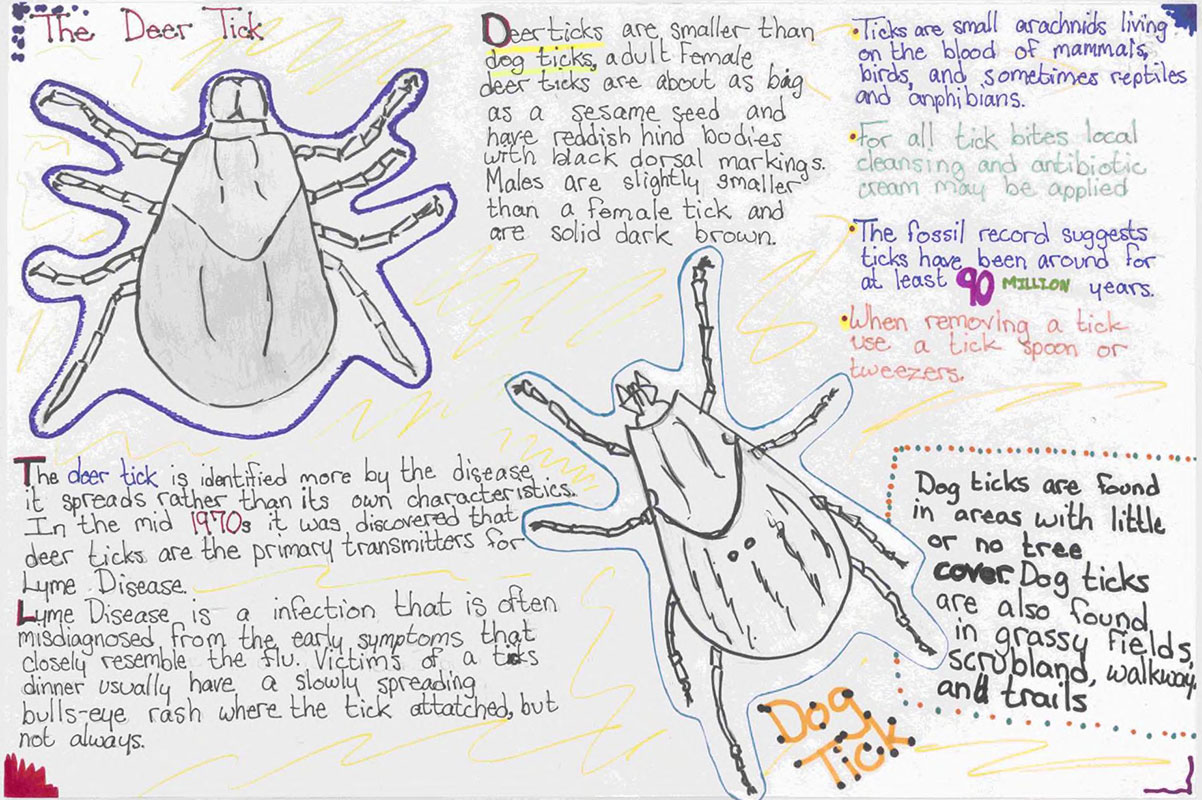 The Deer Tick
Deer ticks are smaller than
dog ticks, adult female
deer ticks are about as big
as a sesame seed and
have reddish hind bodies
with black dorsal markings.
Males are slightly smaller
than a female tick and
are solid dark brown.
•Ticks are small arachnids living
on the blood of mammals,
birds, and sometimes reptiles
and amphibians.
•For all tick bites local
cleansing and antibiotic
cream may be applied
•The fossil record suggests
ticks have been around for
at least 90 MILLION years.
•When removing a tick
use a tick spoon or
tweezers.
The deer tick is identified more by the disease
it spreads rather than its own characteristics.
In the mid 1970s it was discovered that
deer ticks are the primary transmitters for
Lyme Disease.
Lyme Disease is a infection that is often
misdiagnosed from the early symptoms that
closely resemble the flu. Victims of a ticks
dinner usually have a slowly spreading
bulls-eye rash where the tick attatched, but
not always.
Dog ticks are found
in areas with little
or no tree
cover. Dog ticks
are also found
in grassy fields,
scrubland, walkway,
and trails
Dog
Tick